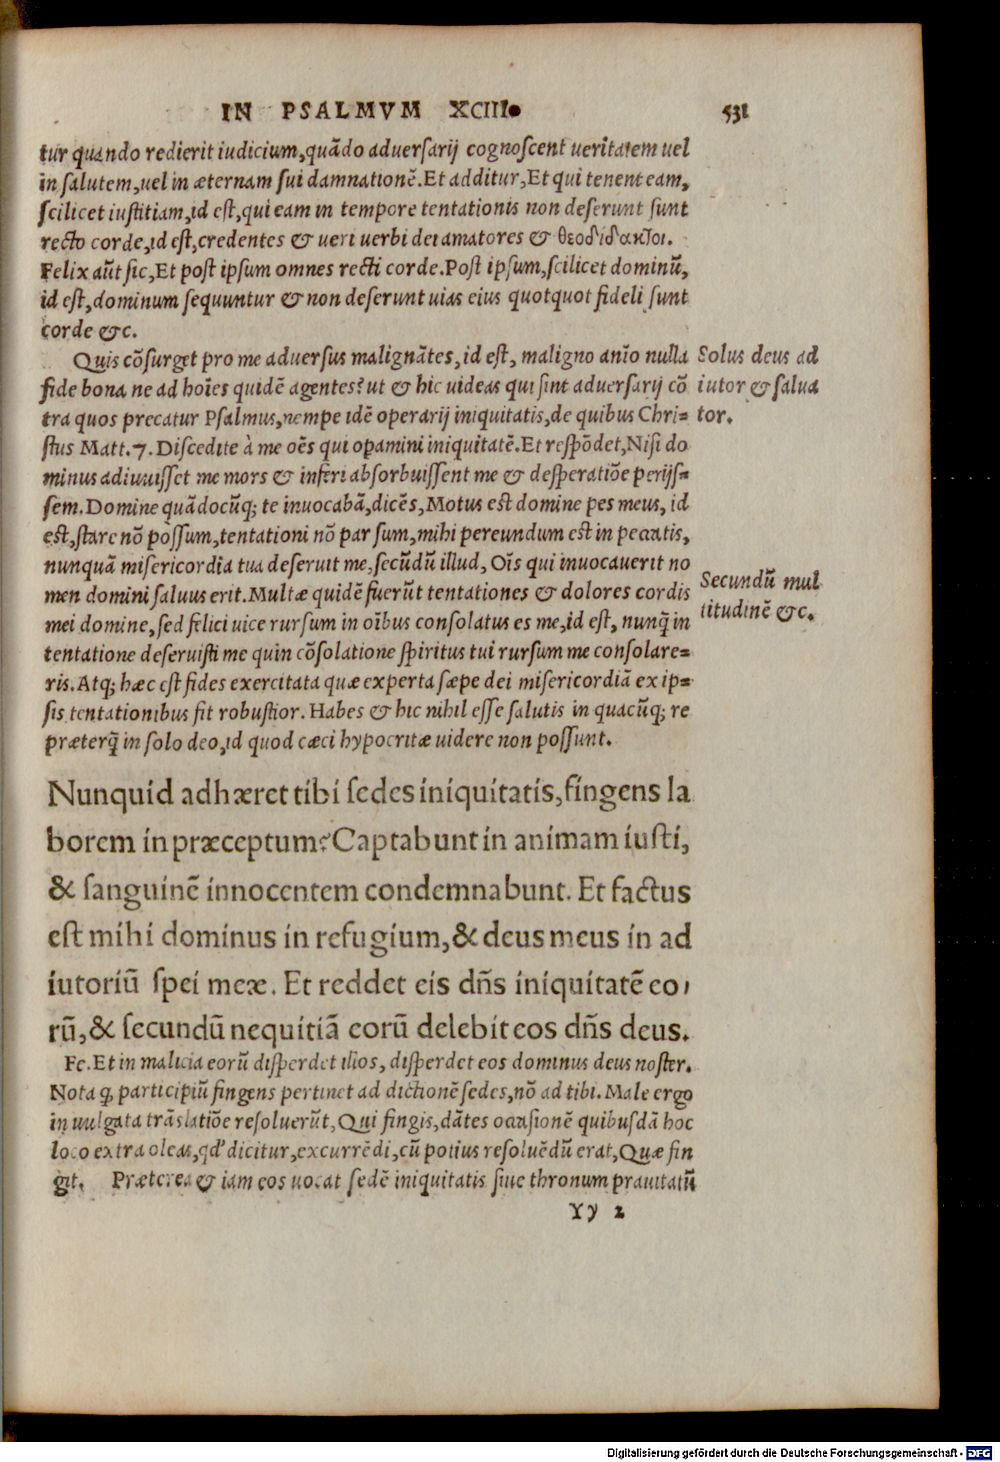 IN PSALMVM XCIII. 531
tur quando redierit iudicium,quãdo aduersarij cognoscent ueritatem uel
in salutem,uel in æternam sui damnationẽ.Et additur,Et qui tenent eam,
scilicet iustitiam,id est,qui eam in tempore tentationis non deserunt sunt
recto corde,id est,credentes & ueri uerbi dei amatores & θεοδίδακτοι.
Felix aũt sic,Et post ipsum omnes recti corde.Post ipsum,scilicet dominũ,
id est,dominum sequuntur & non deserunt uias eius quotquot fideli sunt
corde &c.
Quis cõsurget pro me aduersus malignãtes,id est, maligno anĩo nulla
fide bona ne ad hoĩes quidẽ agentes?ut & hic uideas qui sint aduersarij cõ
tra quos precatur Psalmus,nempe idẽ operarij iniquitatis,de quibus Chri=
stus Matt.7.Discedite à me oẽs qui opamini iniquitatẽ.Et respõdet,Nisi do
minus adiuuisset me mors & inferi absorbuissent me & desperatiõe perijs=
sem.Domine quãdocũq; te inuocabã,dicẽs,Motus est domine pes meus, id
est,stare nõ possum,tentationi nõ par sum,mihi pereundum est in peccatis,
nunquã misericordia tua deseruit me,secũdũ illud, Oĩs qui inuocauerit no
men domini saluus erit.Multæ quidẽ fuerũt tentationes & dolores cordis
mei domine,sed felici uice rursum in oĩbus consolatus es me,id est, nunq̃ in
tentatione deseruisti me quin cõsolatione spiritus tui rursum me consolare=
ris.Atq; hæc est fides exercitata quæ experta sæpe dei misericordiã ex ip=
sis tentationibus fit robustior. Habes & hic nihil esse salutis in quacũq; re
præterq̃ in solo deo,id quod cæci hypocritæ uidere non possunt.
Solus deus ad
iutor & salua
tor.
Secundũ mul
titudinẽ &c.
Nunquid adhæret tibi sedes iniquitatis,fingens la
borem in præceptum?Captabunt in animam iusti,
& sanguinẽ innocentem condemnabunt. Et factus
est mihi dominus in refugium,& deus meus in ad
iutoriũ spei meæ. Et reddet eis dñs iniquitatẽ eo,
rũ,& secundũ nequitiã eorũ delebit eos dñs deus.
Fe.Et in malicia eorũ disperdet illos, disperdet eos dominus deus noster.
Nota q, participiũ fingens pertinet ad dictionẽ sedes,nõ ad tibi.Male ergo
in uulgata trãslatiõe resoluerũt,Qui fingis,dãtes occasionẽ quibusdã hoc
loco extra oleas,qd' dicitur,excurrẽdi,cũ potius resoluẽdũ erat,Quæ fin
git. Præterea & iam eos uocat sedẽ iniquitatis siue thronum prauitatũ
Yy 2
Digitalisierung gefördert durch die Deutsche Forschungsgemeinschaft - DFG